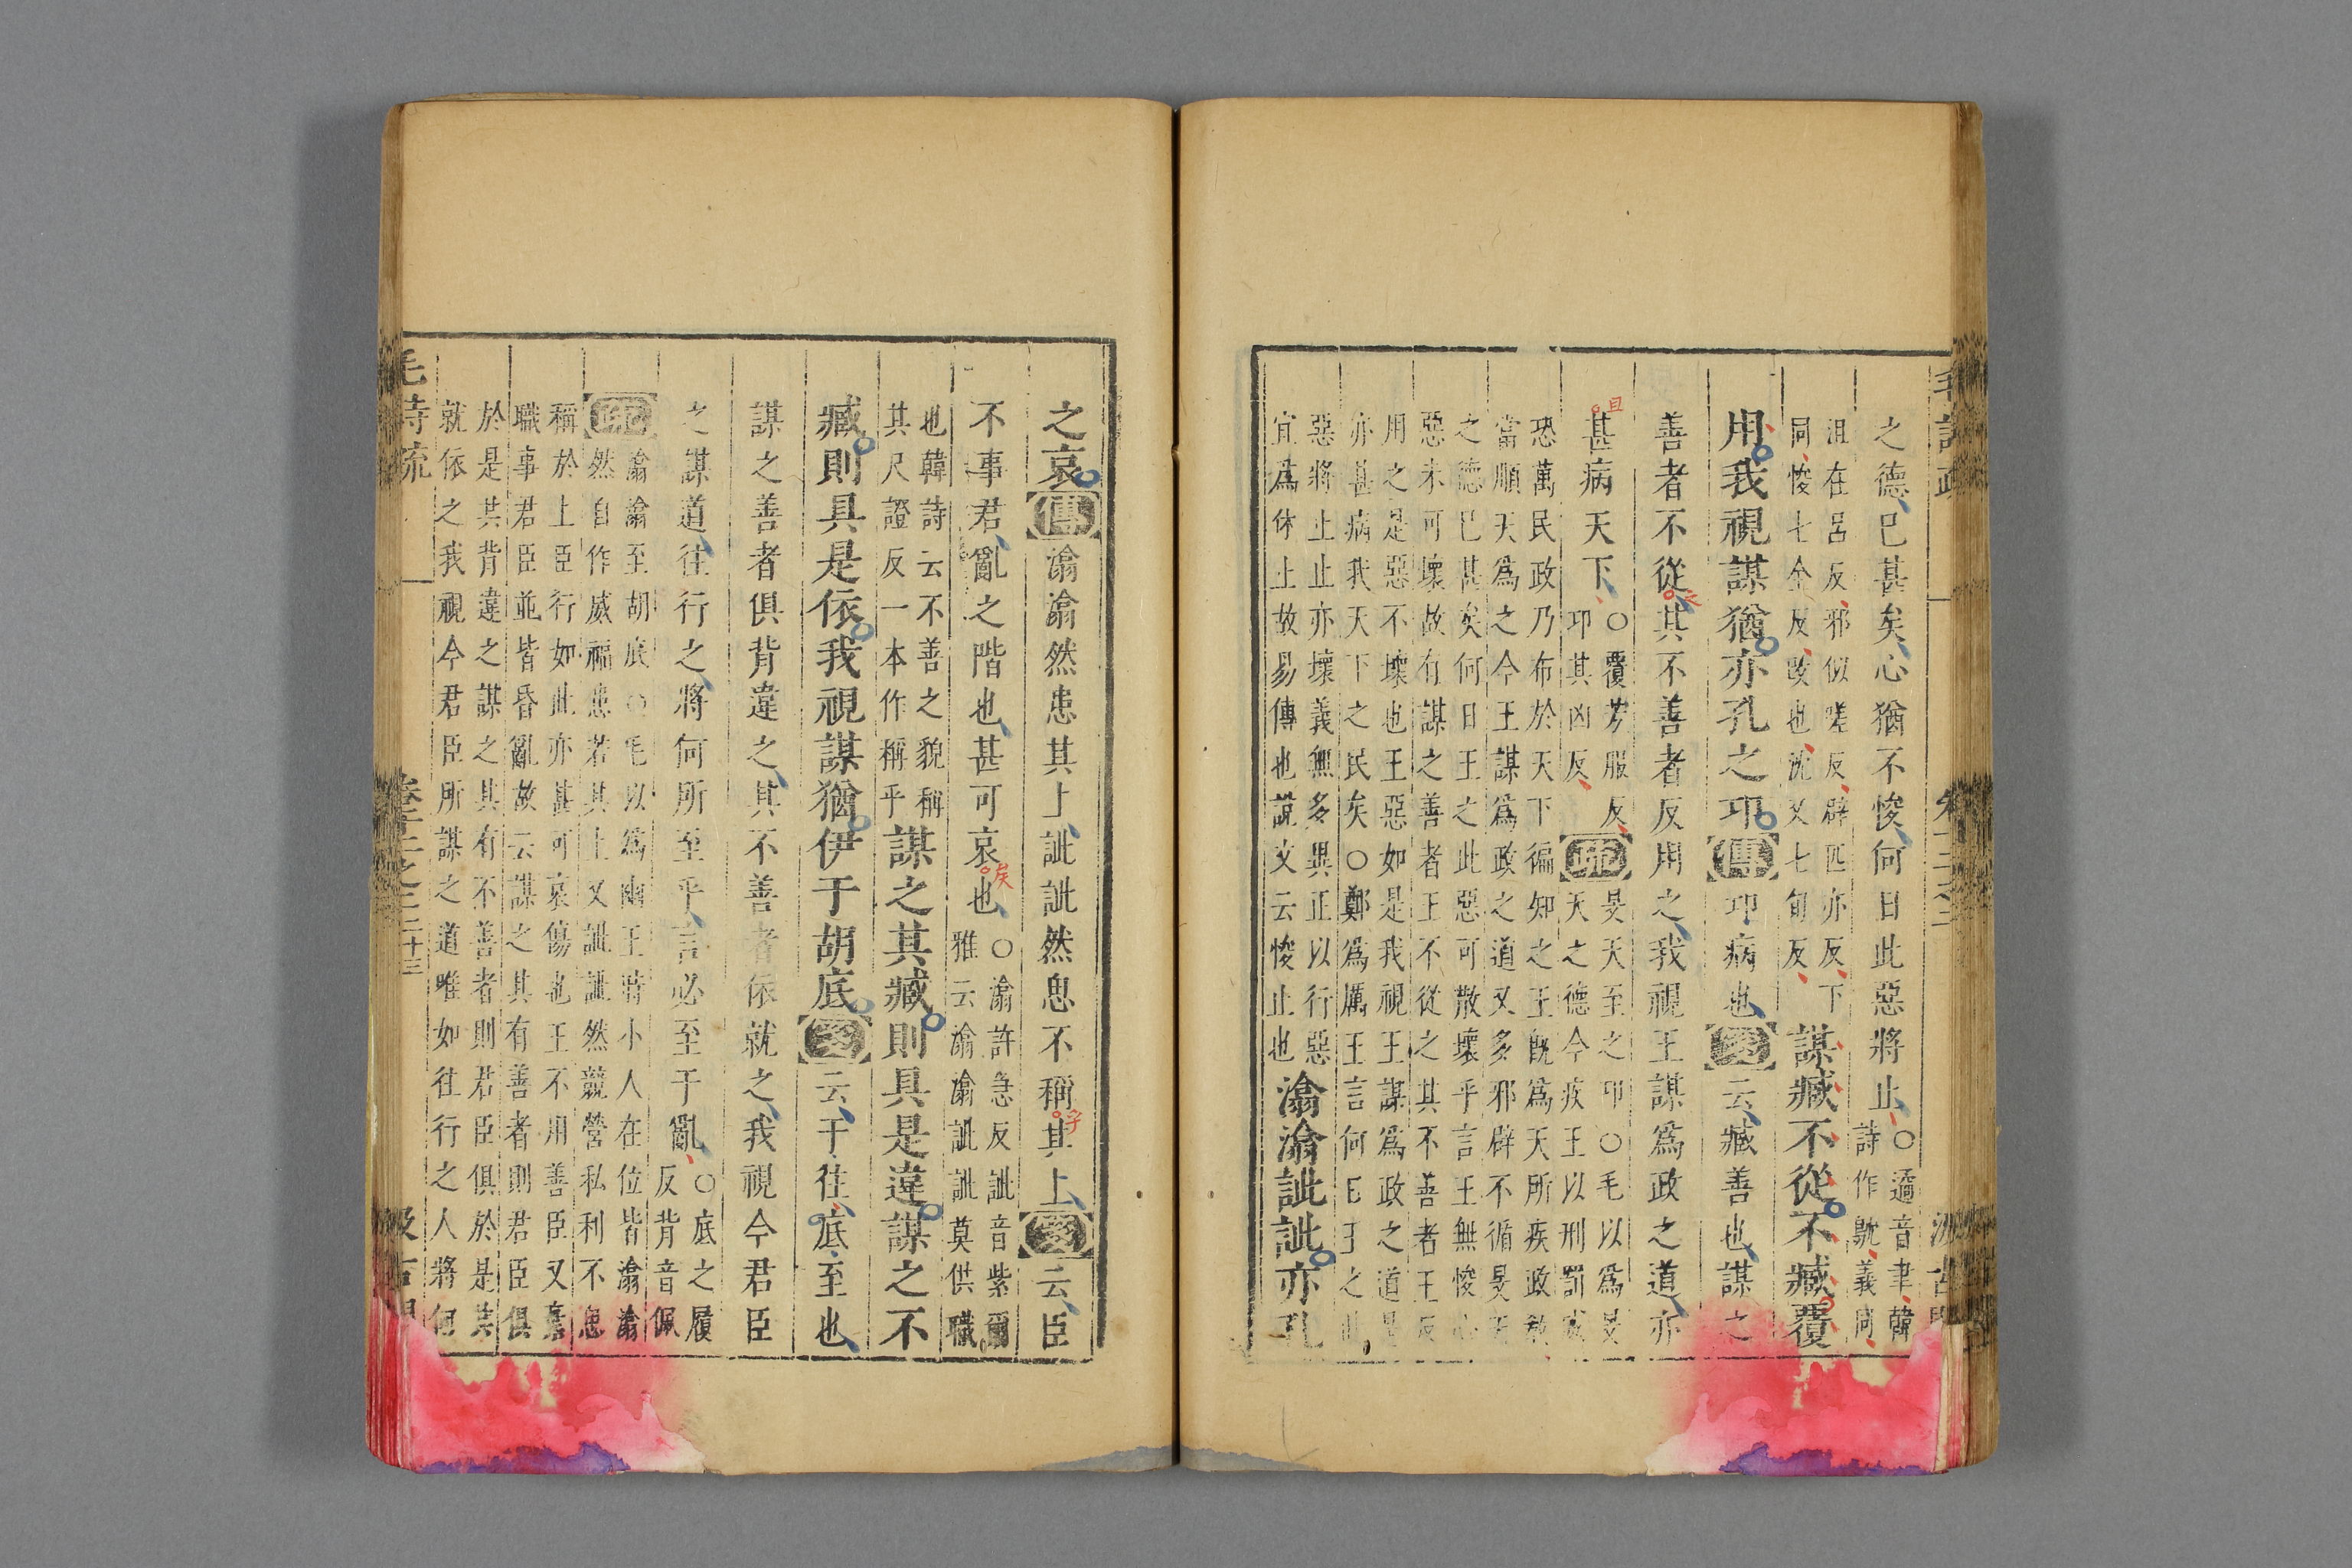 之德巳甚矣心猶不悛何日此惡將止○遹音聿韓
詩作鴥義同
沮在呂反邪似嗟反辟匹亦反下
同悛七全反改也沈又七旬反謀臧不從不臧覆
用我視謀猶亦孔之邛傳邛病也箋云臧善也謀之
善者不從其不善者反用之我視王謀爲政之道亦
矣
甚病天下○覆芳服反
邛其凶反疏旻天至之邛○毛以爲旻
天之德今疾王以刑罰威
且
恐萬民政乃布於天下徧知之王旣爲天所疾政教
當順天爲之今王謀爲政之道又多邪辟不循旻天
之德巳甚矣何日王之此惡可散壞乎言王無悛心
惡未可壞故有謀之善者王不從之其不善者王反
用之是惡不壞也王惡如是我視王謀爲政之道是
亦甚病我天下之民矣○鄭爲厲王言何日王之此
惡將止止亦壞義無多異正以行惡
宜爲休止故易傳也說文云悛止也潝潝訿訿亦孔
之哀傳潝潝然患其上訿訿然思不稱其上箋云臣
乎
不事君亂之階也甚可哀也○潝許急反訿音紫爾
雅云潝潝訿訿莫供職
矣
也韓詩云不善之貌稱
其尺證反一本作稱乎謀之其臧則具是違謀之不
臧則具是依我視謀猶伊于胡底箋云于往底至也
謀之善者俱背違之其不善者依就之我視今君臣
之謀道往行之將何所至乎言必至于亂○底之履
反背音佩
疏潝潝至胡底○毛以爲幽王時小人在位皆潝潝
然自作威福患苦其上又訿訿然競營私利不思
稱於上臣行如此亦甚可哀傷也王不用善臣又
職事君臣並皆昏亂故云謀之其有善者則君臣俱
於是共背違之謀之其有不善者則君臣俱於是共
就依之我視今君臣所謀之道唯如往行之人將何
毛詩疏 卷十二之二 二十三